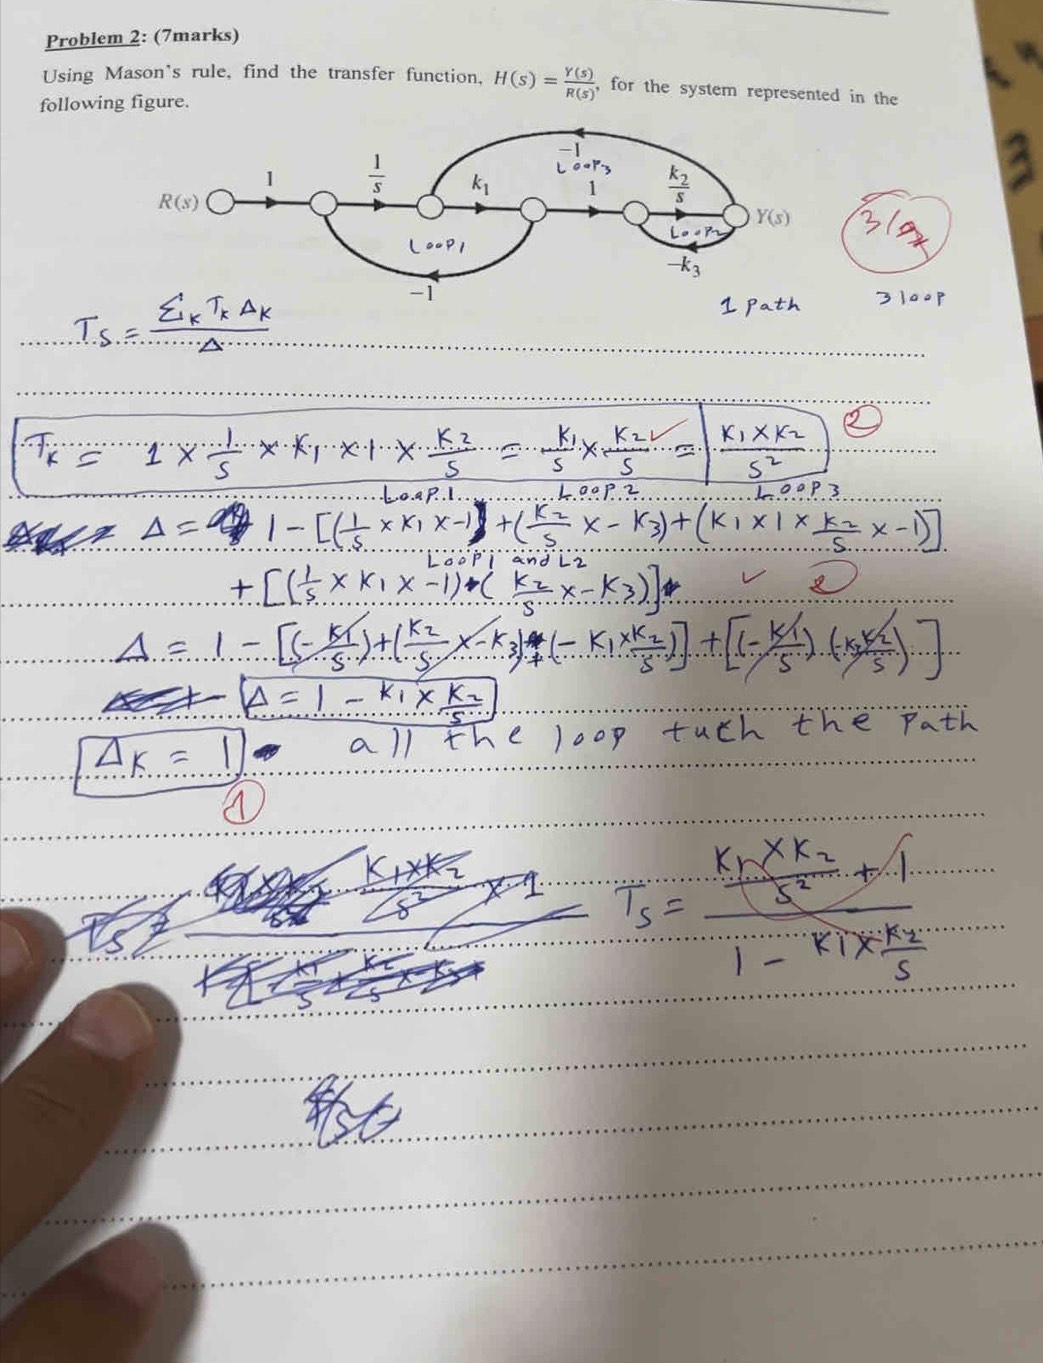 Problem 2: (7marks)
Using Mason's rule, find the transfer function, H(s) = Y(s)/R(s), for the system represented in the
following figure.
-1
Loop3
1
1/s
k1
1
k2/s
R(s)
Y(s)
Loop1
Loop2
-k3
-1
1 path
3 loop
Ts = Σk Tk Δk / Δ
Tk = 1 × 1/s × K1 × 1 × K2/s = K1/s × K2/s ✓ = K1 × K2 / s²
2
Loop1 Loop2 Loop3
Δ = 1 - [(1/s × K1 × -1) + (K2/s × - K3) + (K1 × 1 × K2/s × -1)]
Loop1 and L2
+ [(1/s × K1 × -1) · (K2/s × - K3)] ✓ 2
Δ = 1 - [(-K1/s) + (K2/s × - K3) + (- K1 × K2/s)] + [(-K1/s) (-K3 K2/s)]
Δ = 1 - K1 × K2/s
ΔK = 1 all the loop tuch the Path
1
K1 × K2 / s² × 1
Ts = (K1 × K2 / s² + 1) / (1 - K1 × K2/s)